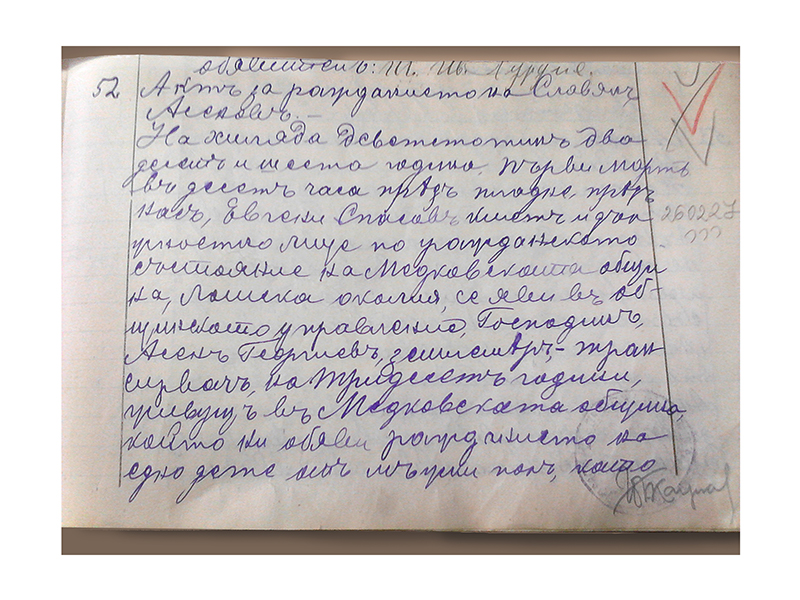 обявителъ: Т. Ив.
52 Актъ за раждането на Славянъ
Асеновъ. —
На хиляда деветстотинъ два
десеть и шеста година, първи Мартъ
въ десеть часа прѣдъ пладне, прѣдъ
насъ, Евгени Спасовъ кметъ и длъ-
жностно лице по гражданското
състояние на Медковската общи
на, Ломска околия, се яви въ об-
щинското управление, Господинъ
Асенъ Георгиевъ,
на тридесеть години,
живущъ въ Медковската община,
който ни обяви раждането на
едно дете отъ мъжки полъ, което
260227